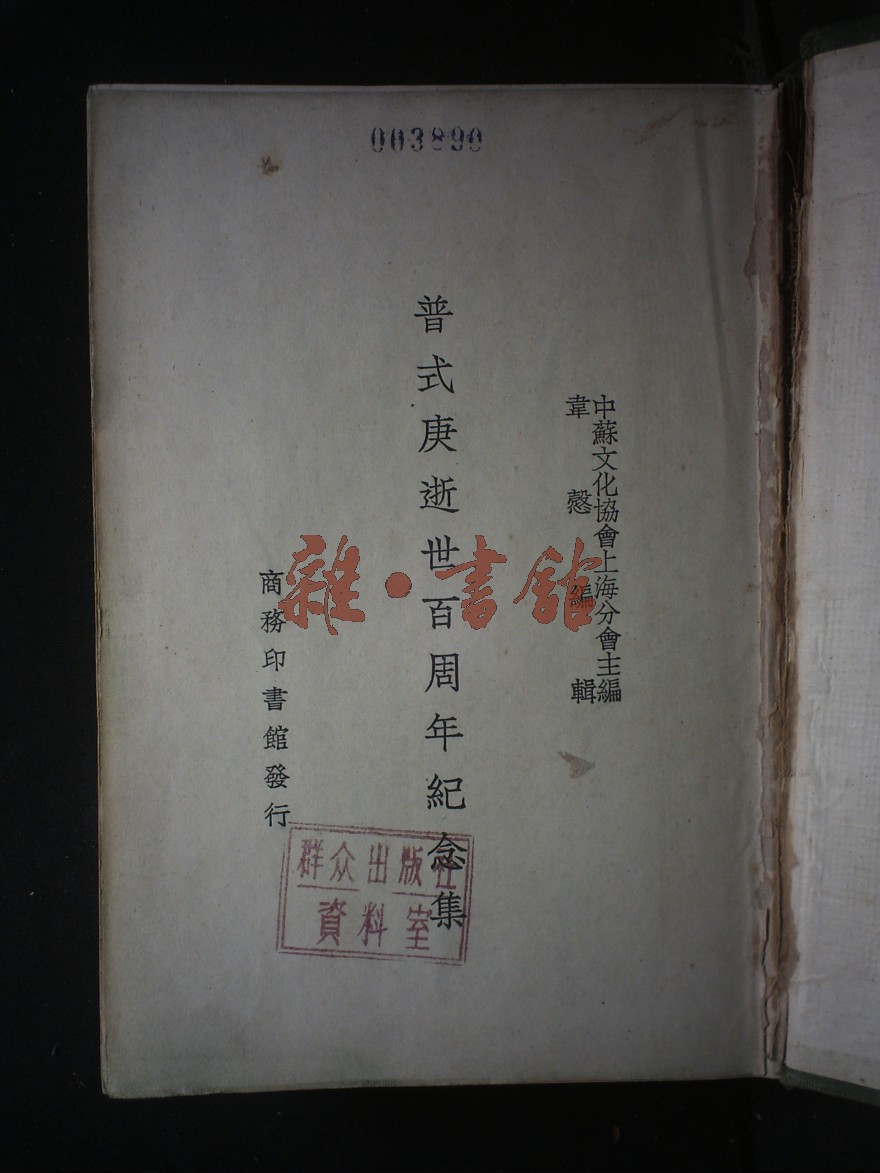 003890
中蘇文化協會上海分會主編
韋慤編輯
普式庚逝世百周年紀念集
商務印書館發行
雜·書館
群众出版社
資料室